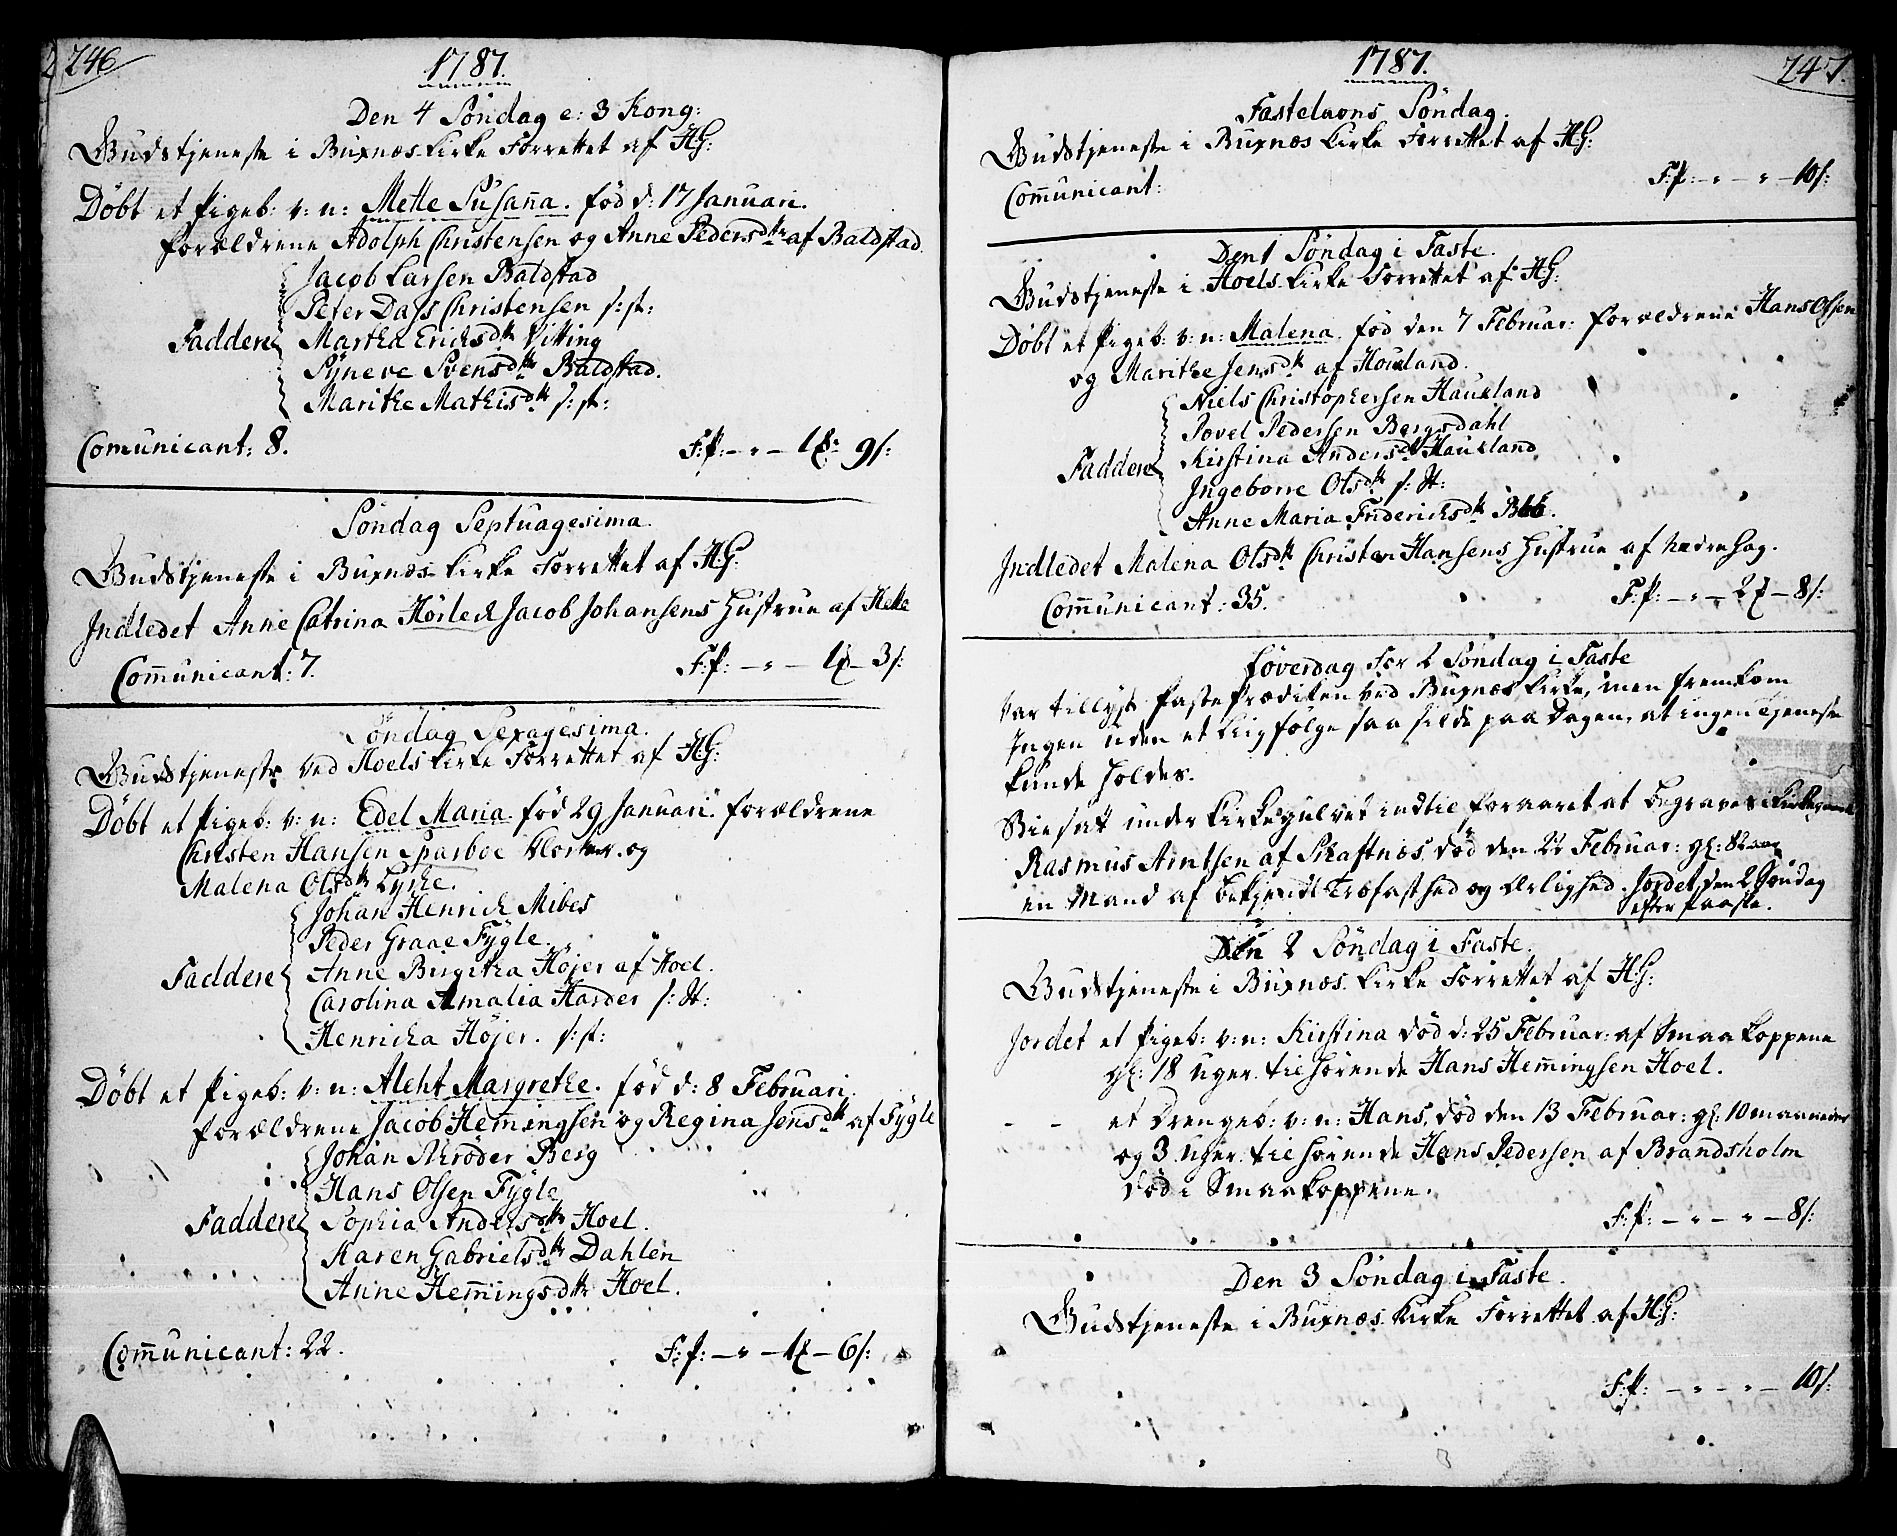 246
1787.
Den 4 Söndag e: 3 Kong:
Gudstjeneste i Buxnæs Kirke Forrettet af HG:
Döbt et Pigeb: v: n: Mette Susaña. föd d: 17 Januari.
forældrene Adolph Christensen og Anne Pedersdtr af Baldstad
Jacob Larsen Baldstad
Peter Dass Christensen s: st:
Faddere Martha Ericksdtr Vitting
Syneve Svensdtr Baldstad.
Marithe Mathisdtr s: st:
Comunicant: 8.
F:P: – " – 1 9 s:
Söndag Septuagesima.
Gudstjeneste i Buxnæs Kirke Forrettet af HG:
Indledet Anne Catrina Hörleck Jacob Johansens Hustrue af Helle
Com̄unicant: 7.
F:P: – " – 1 – 3 s:
Söndag Sexagesima.
Gudstjeneste ved Hoels Kirke Forrettet af HG:
Döbt et Pigeb: v: n: Edel Maria. föd 29 Januari. forældrene
Christen Hansen Sparboe Klocker og
Malena Olsdtr Lyche.
Johan Henrich Mibes
Peder Graae Fygle.
Faddere Anne Birgitha Höjer af Hoel.
Carolina Amalia Harder s: St:
Henricha Höjer. s: st:
Döbt et Pigeb: v: n: Aleht Margrethe. föd d: 8 Februari.
forældrene Jacob Hem̄ingsen og Regina Jensdtr af Fygle
Johan Schröder Berg
Hans Olsen Fygle
Faddere Sophia Andersdtr Hoel.
Karen Gabrielsdtr Dahlen
Anne Hem̄ingsdtr Hoel.
Com̄unicant: 22.
F:P: – " – 1 – 6 s:
1787.
247.
Fastelavns Söndag.
Gudstjeneste i Buxnæs Kirke Forrettet af HG:
Com̄unicant:
F:P: – " – " – 10 s:
Den 1 Söndag i Faste.
Gudstjeneste i Hoels Kirke Forrettet af HG:
Döbt et Pigeb: v: n: Malena. föd den 7 Februar: forældrene Hans Olsen
og Marithe Jensdtr af Houkland.
Niels Christophersen Haukland
Povel Pedersen Bergsdahl
Faddere Kirstina Andersdtr Haukland
Ingeborre Olsdtr s: St:
Anne Maria Friderichsdtr
Indledet Malena Olsdtr Christen Hansens Hustrue af Nedre Hag.
Com̄unicant: 35.
F:P: – " – 2 – 8 s:
Löverdag For 2 Söndag i Faste
var tillyst Fasteprædiken ved Buxnæs Kirke, men fremkom
Ingen uden et Liigfölge saa silde paa Dagen, at ingen Tjeneste
kunde holdes.
Biesatt under Kirkegulvet indtil foraaret at begraves i Kirkegaard
Rasmus Arntsen af Skaftnæs död den 22 Februar: gl: 82 aar
en Mand af bekjendt Trofasthed og Ærlighed. Jordet den 2 Söndag
efter Paaske.
Den 2 Söndag i Faste.
Gudstjeneste i Buxnæs Kirke Forrettet af HG:
Jordet et Pigeb: v: n: Kirstina död d: 25 Februar: af Smaakoppene
gl: 18 uger. tilhörende Hans Hem̄ingsen Hoel.
– – et Drengeb: v: n: Hans, död den 13 Februar: gl: 10 maaneder
og 3 uger. tilhörende Hans Pedersen af Brandsholm
död i Smaakoppene.
F:P: – " – " – 8 s:
Den 3 Söndag i Faste.
Gudstjeneste i Buxnæs Kirke Forrettet af HG:
F:P: – " – " – 10 s: